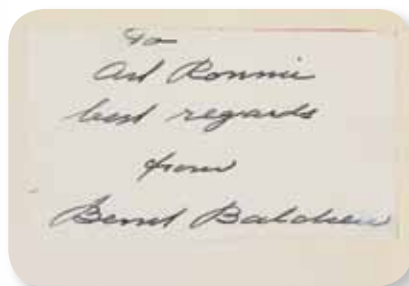 To
Art Ronnie
best regards
from
Bernt Balchen